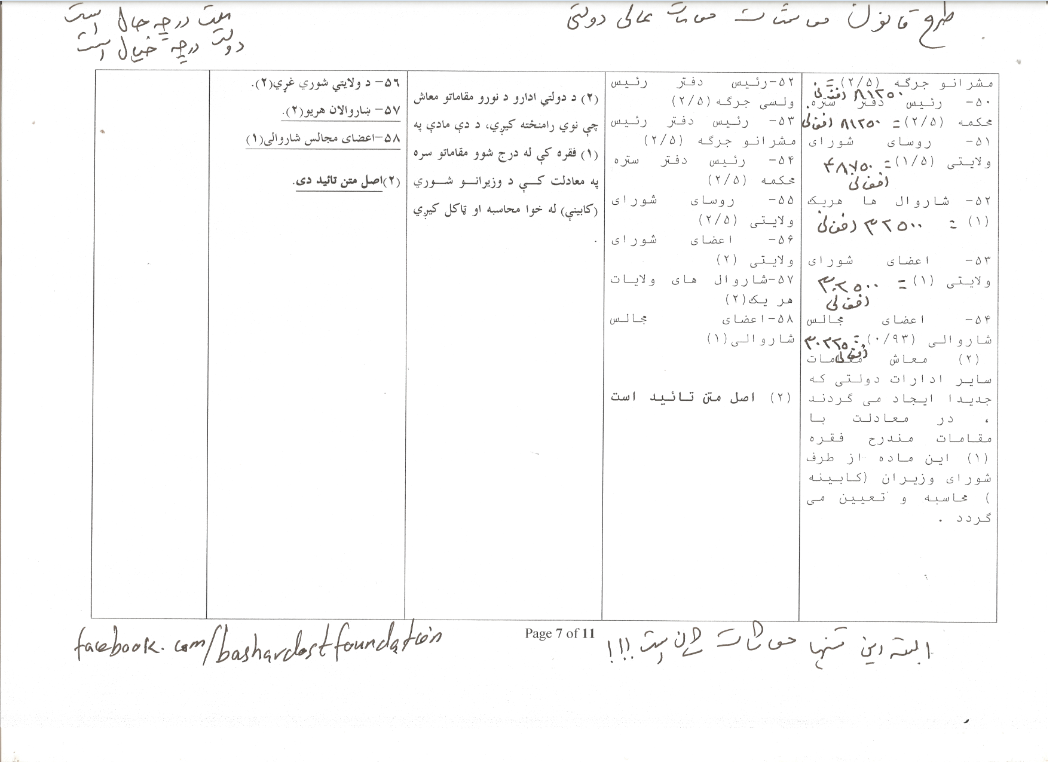 طرح قانون معاشات مقامات عالی دولتی
ملت در چه حال است
دولت در چه خیال است
مشرانو جرگه (۲/۵) =
۸۱۲۵۰ افغانی
۵۰- رئیس دفتر ستره
محکمه (۲/۵) = ۸۱۲۵۰ افغانی
۵۱- روسای شورای
ولایتی (۱/۵) = ۴۸۷۵۰
افغانی
۵۲- شاروال ها هریک
(۱) = ۳۲۵۰۰ افغانی
۵۳- اعضای شورای
ولایتی (۱) = ۳۲۵۰۰
افغانی
۵۴- اعضای مجالس
شاروالی (۰/۹۳) = ۳۰۲۲۵
افغانی
(۲) معاش مقامات
سایر ادارات دولتی که
جدیدا ایجاد می گردند
، در معادلت با
مقامات مندرج فقره
(۱) این ماده از طرف
شورای وزیران (کابینه
) محاسبه و تعیین می
گردد .
۵۲-رئیس دفتر رئیس
ولسی جرگه (۲/۵)
۵۳- رئیس دفتر رئیس
مشرانو جرگه (۲/۵)
۵۴- رئیس دفتر ستره
محکمه (۲/۵)
۵۵- روسای شورای
ولایتی (۲/۵)
۵۶- اعضای شورای
ولایتی (۲)
۵۷-شاروال های ولایات
هر یک(۲)
۵۸-اعضای مجالس
شاروالی(۱)
(۲) اصل متن تائید است
(۲) د دولتي ادارو د نورو مقاماتو معاش
چې نوي رامنځته کیږي، د دې مادې په
(۱) فقره کې له درج شوو مقاماتو سره
په معادلت کې د وزیرانو شوری
(کابینې) له خوا محاسبه او ټاکل کیږي
.
۵۶- د ولایتي شوری غړي(۲).
۵۷- ښاروالان هریو(۲).
۵۸-اعضای مجالس شاروالی(۱)
(۲)اصل متن تائید دی.
Page 7 of 11
البته این تنها معاشات شان است !!!
facebook.com/bashardostfoundation